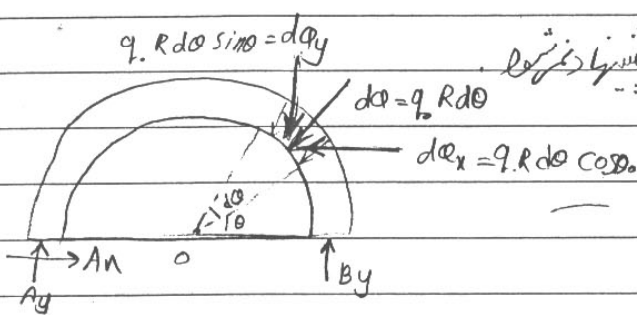 q. R dθ sinθ = dQy
dQ = q. R dθ
dQx = q. R dθ cosθ.
dθ
θ
Ax
O
Ay
By